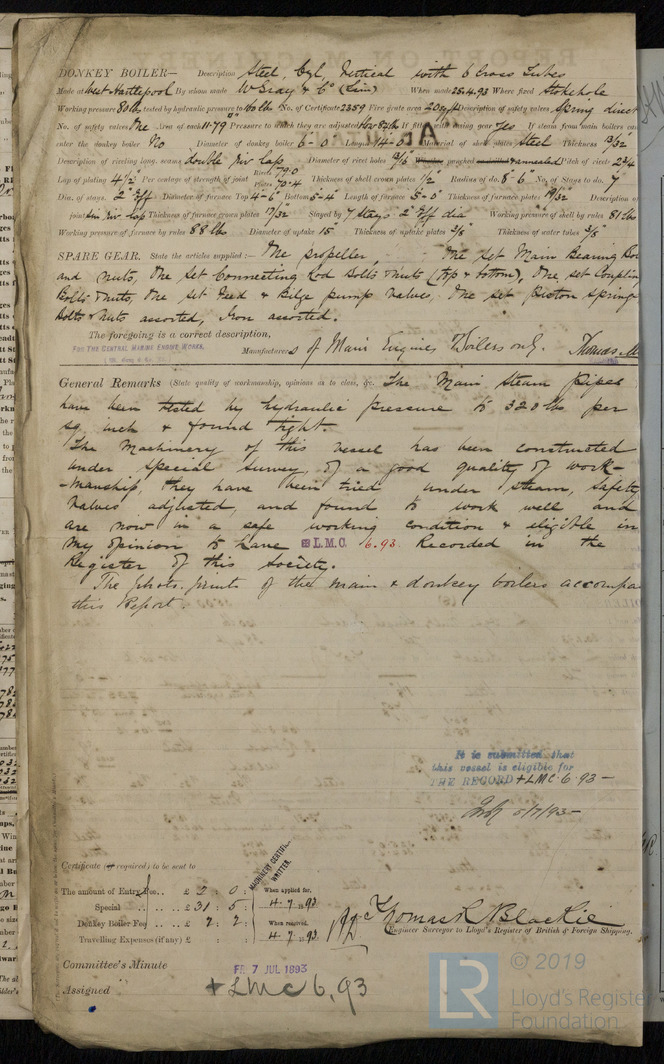 DONKEY BOILER— Description Steel, Cyl, Vertical with 6 Cross Tubes
Made at West Hartlepool By whom made W Gray & Co (Lim) When made 25.4.93 Where fixed Stokehole
Working pressure 80 lbs tested by hydraulic pressure to 160 lbs No. of Certificate 2359 Fire grate area 20 sq ft Description of safety valves Spring direct
No. of safety valves One Area of each 11.79 Pressure to which they are adjusted If fitted with easing gear Yes If steam from main boilers can
enter the donkey boiler No Diameter of donkey boiler 6-0 Length 14-0 Material of shell plates Steel Thickness 13/32
Description of riveting long. seams double riv lap Diameter of rivet holes Whether punched or drilled & annealed Pitch of rivets 2 3/4
Lap of plating 4 1/2 Per centage of strength of joint Rivets 79.0
Plates 70.4 Thickness of shell crown plates 1/2 Radius of do. 8-6 No. of Stays to do. 7
Dia. of stays. 2" Diameter of furnace Top 4-6 Bottom 5-4 Length of furnace 5-0 Thickness of furnace plates 19/32 Description of
joint Sin riv lap Thickness of furnace crown plates 17/32 Stayed by 7 stays 2" dia Working pressure of shell by rules 81 lbs
Working pressure of furnace by rules 88 lbs Diameter of uptake 15 Thickness of uptake plates 3/8 Thickness of water tubes 3/8
SPARE GEAR. State the articles supplied:— One propeller, One set Main Bearing Bolts
and nuts, One set Connecting Rod Bolts & nuts (top & bottom), One set Coupling
Bolts & nuts, One set Feed & Bilge pump valves, One set Piston Springs
Bolts & Nuts assorted, Iron assorted.
The foregoing is a correct description,
FOR THE CENTRAL MARINE ENGINE WORKS.
Manufacturers of Main Engines, Boilers only. Thomas
General Remarks (State quality of workmanship, opinions as to class, &c. The Main Steam Pipes
have been tested by hydraulic pressure to 320 lbs per
sq. inch & found tight.
The Machinery of this vessel has been constructed
under special survey, of a good quality of work-
-manship, they have been tried under steam, Safety
Valves adjusted, and found to work well and
are now in a safe working condition & eligible in
my opinion to have L.M.C. 6.93 Recorded in the
Register of this Society.
The photo. prints of the main & donkey boilers accompa
this Report.
It is submitted that
this vessel is eligible for
THE RECORD + LMC 6.93 —
5/7/93
Certificate (if required) to be sent to
MACHINERY CERTIF. WRITTEN.
The amount of Entry Fee.. £ 2 : 0 : When applied for,
Special .. .. £ 31 : 5 : 4.7.1893
Donkey Boiler Fee £ 2 : 2 : When received,
Travelling Expenses (if any) £ : : 4.7.93
Thomas R Blackie
Engineer Surveyor to Lloyd's Register of British & Foreign Shipping.
Committee's Minute FRI 7 JUL 1893
Assigned + LMC 6,93
LR © 2019
Lloyd's Register
Foundation